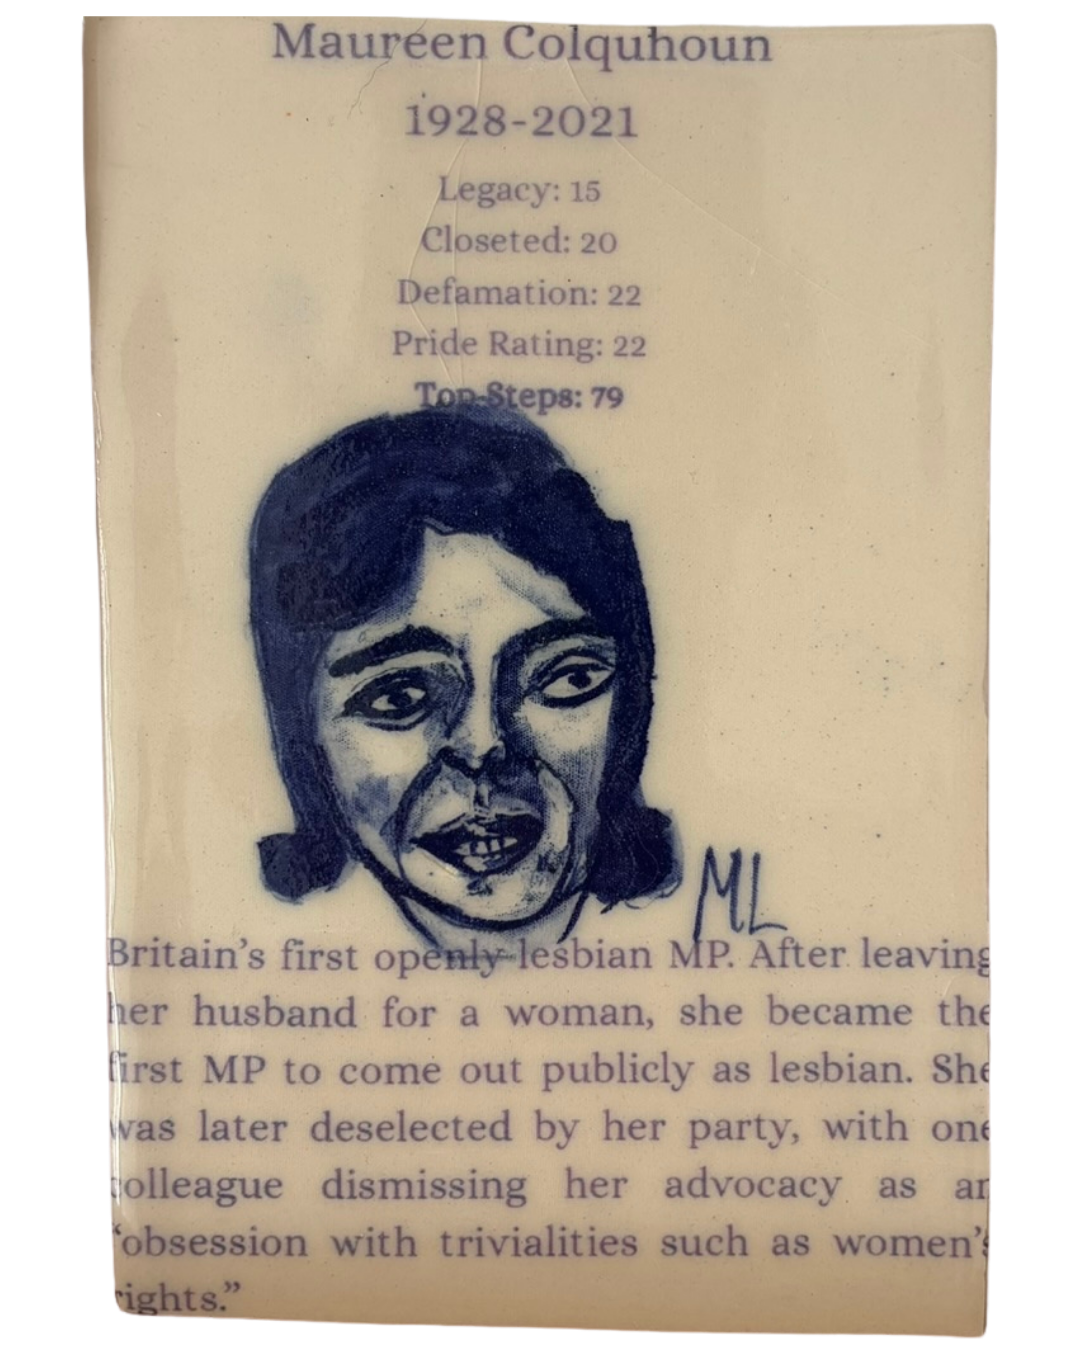 Maureen Colquhoun
1928-2021
Legacy: 15
Closeted: 20
Defamation: 22
Pride Rating: 22
Top Steps: 79
ML
Britain’s first openly lesbian MP. After leaving
her husband for a woman, she became the
first MP to come out publicly as lesbian. She
was later deselected by her party, with one
colleague dismissing her advocacy as an
“obsession with trivialities such as women’s
rights.”